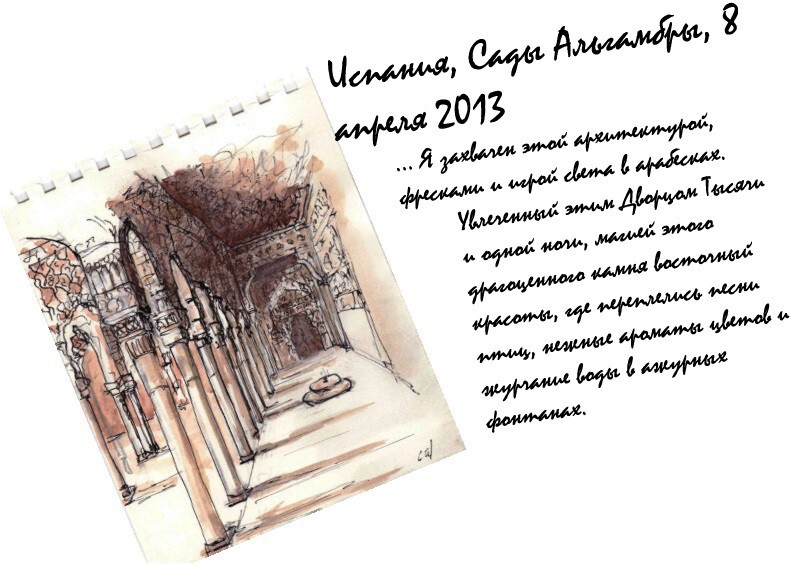 Испания, Сады Альгамбры, 8
апреля 2013
... Я захвачен этой архитектурой,
фресками и игрой света в арабесках.
Увлеченный этим Дворцом Тысячи
и одной ночи, магией этого
драгоценного камня восточный
красоты, где переплелись песни
птиц, нежные ароматы цветов и
журчание воды в ажурных
фонтанах.